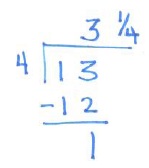 3 1/4
4 13
-12
1